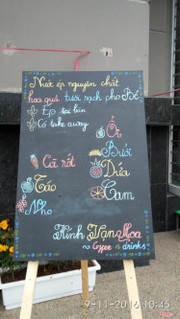 Nước ép nguyên chất
hoa quả tươi sạch cho Bé
Ép tại bàn
Có take away
Ổi
Bưởi
Cà rốt
Dứa
Táo
Cam
Nho
Vân Hoa
Coffee & drinks
9-11-2016 10:45